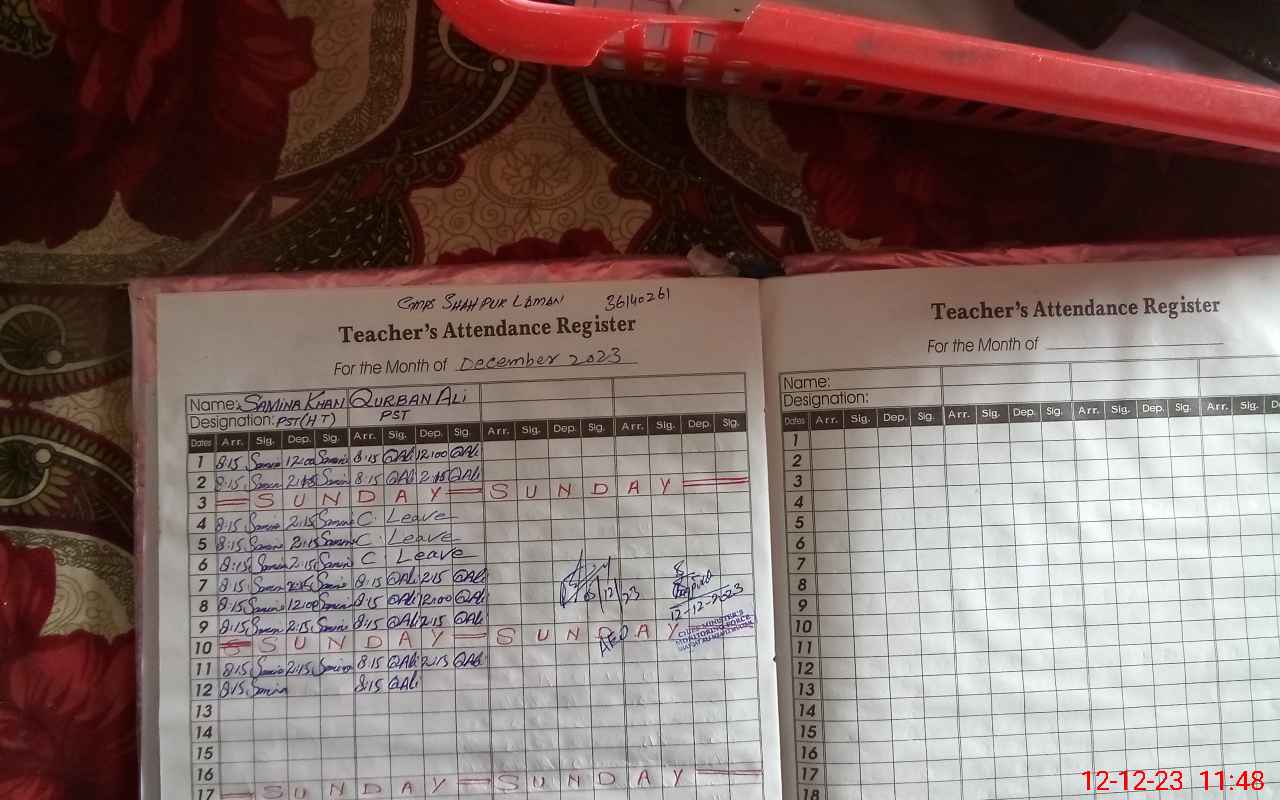 GMPS SHAHPUR LAMAN 36140261
Teacher's Attendance Register
For the Month of December 2023
Name: SAMINA KHAN QURBAN ALI
Designation: PST(HT) PST
Dates Arr. Sig. Dep. Sig. Arr. Sig. Dep. Sig. Arr. Sig. Dep. Sig. Arr. Sig. Dep. Sig.
1 8:15 Samina 12:00 Samina 8:15 QAli 12:00 QAli
2 8:15 Samina 2:15 Samina 8:15 QAli 2:15 QAli
3 SUNDAY SUNDAY
4 8:15 Samina 2:15 Samina C. Leave
5 8:15 Samina 2:15 Samina C. Leave
6 8:15 Samina 2:15 Samina C. Leave
7 8:15 Samina 2:15 Samina 8:15 QAli 2:15 QAli
8 8:15 Samina 12:00 Samina 8:15 QAli 12:00 QAli
9 8:15 Samina 2:15 Samina 8:15 QAli 2:15 QAli
10 SUNDAY SUNDAY
11 8:15 Samina 2:15 Samina 8:15 QAli 2:15 QAli
12 8:15 Samina 8:15 QAli
13
14
15
16
17 SUNDAY SUNDAY
/12/23
AEO
12-12-2023
CHIEF MINISTER'S
MONITORING FORCE
Teacher's Attendance Register
For the Month of
Name:
Designation:
Dates Arr. Sig. Dep. Sig. Arr. Sig. Dep. Sig. Arr. Sig. Dep. Sig. Arr. Sig. D
1
2
3
4
5
6
7
8
9
10
11
12
13
14
15
16
17
18
12-12-23 11:48